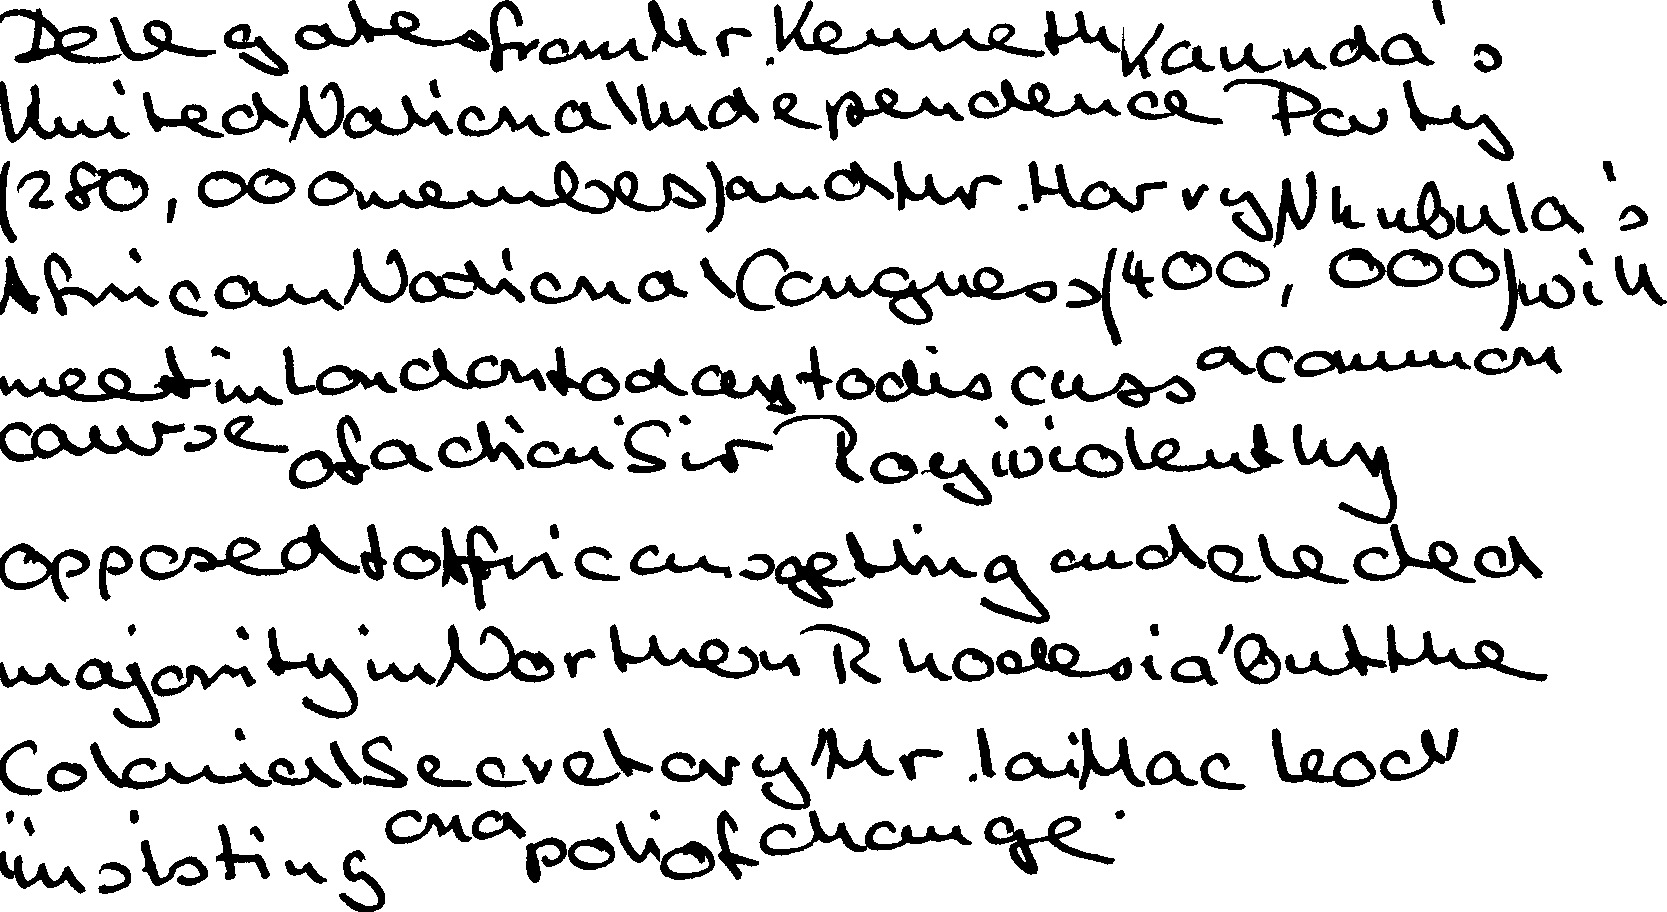 Delegates from Mr. Kenneth Kaunda's
United National Independence Party
(280,000 members) and Mr. Harry Nkubula's
African National Congress (400,000) will
meet in London today to discuss a common
course of action Sir Roy is violently
opposed to Africans getting an elected
majority in Northern Rhodesia but the
Colonial Secretary Mr. Iain Macleod
is insisting on a of change.